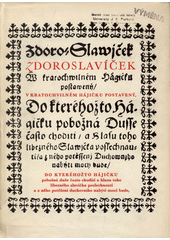 VÝMĚNA
Zdoro-Slawjček
ZDOROSLAVÍČEK
W kratochwilném Hágičku
postawený/
V KRATOCHVILNÉM HÁJIČKU POSTAVENÝ,
Do kteréhožto Há-
gičku pobožná Dusse
často choditi/ a hlasu toho
libezného Slawjčka poslechnau-
ti/ a z něho potěssenj Duchownjho
nabýti mocy bude/
DO KTERÉHOŽTO HÁJIČKU
pobožná duše často choditi a hlasu toho
libezného slavíčka poslechnouti
a z něho potěšení duchovního nabýti moci bude.